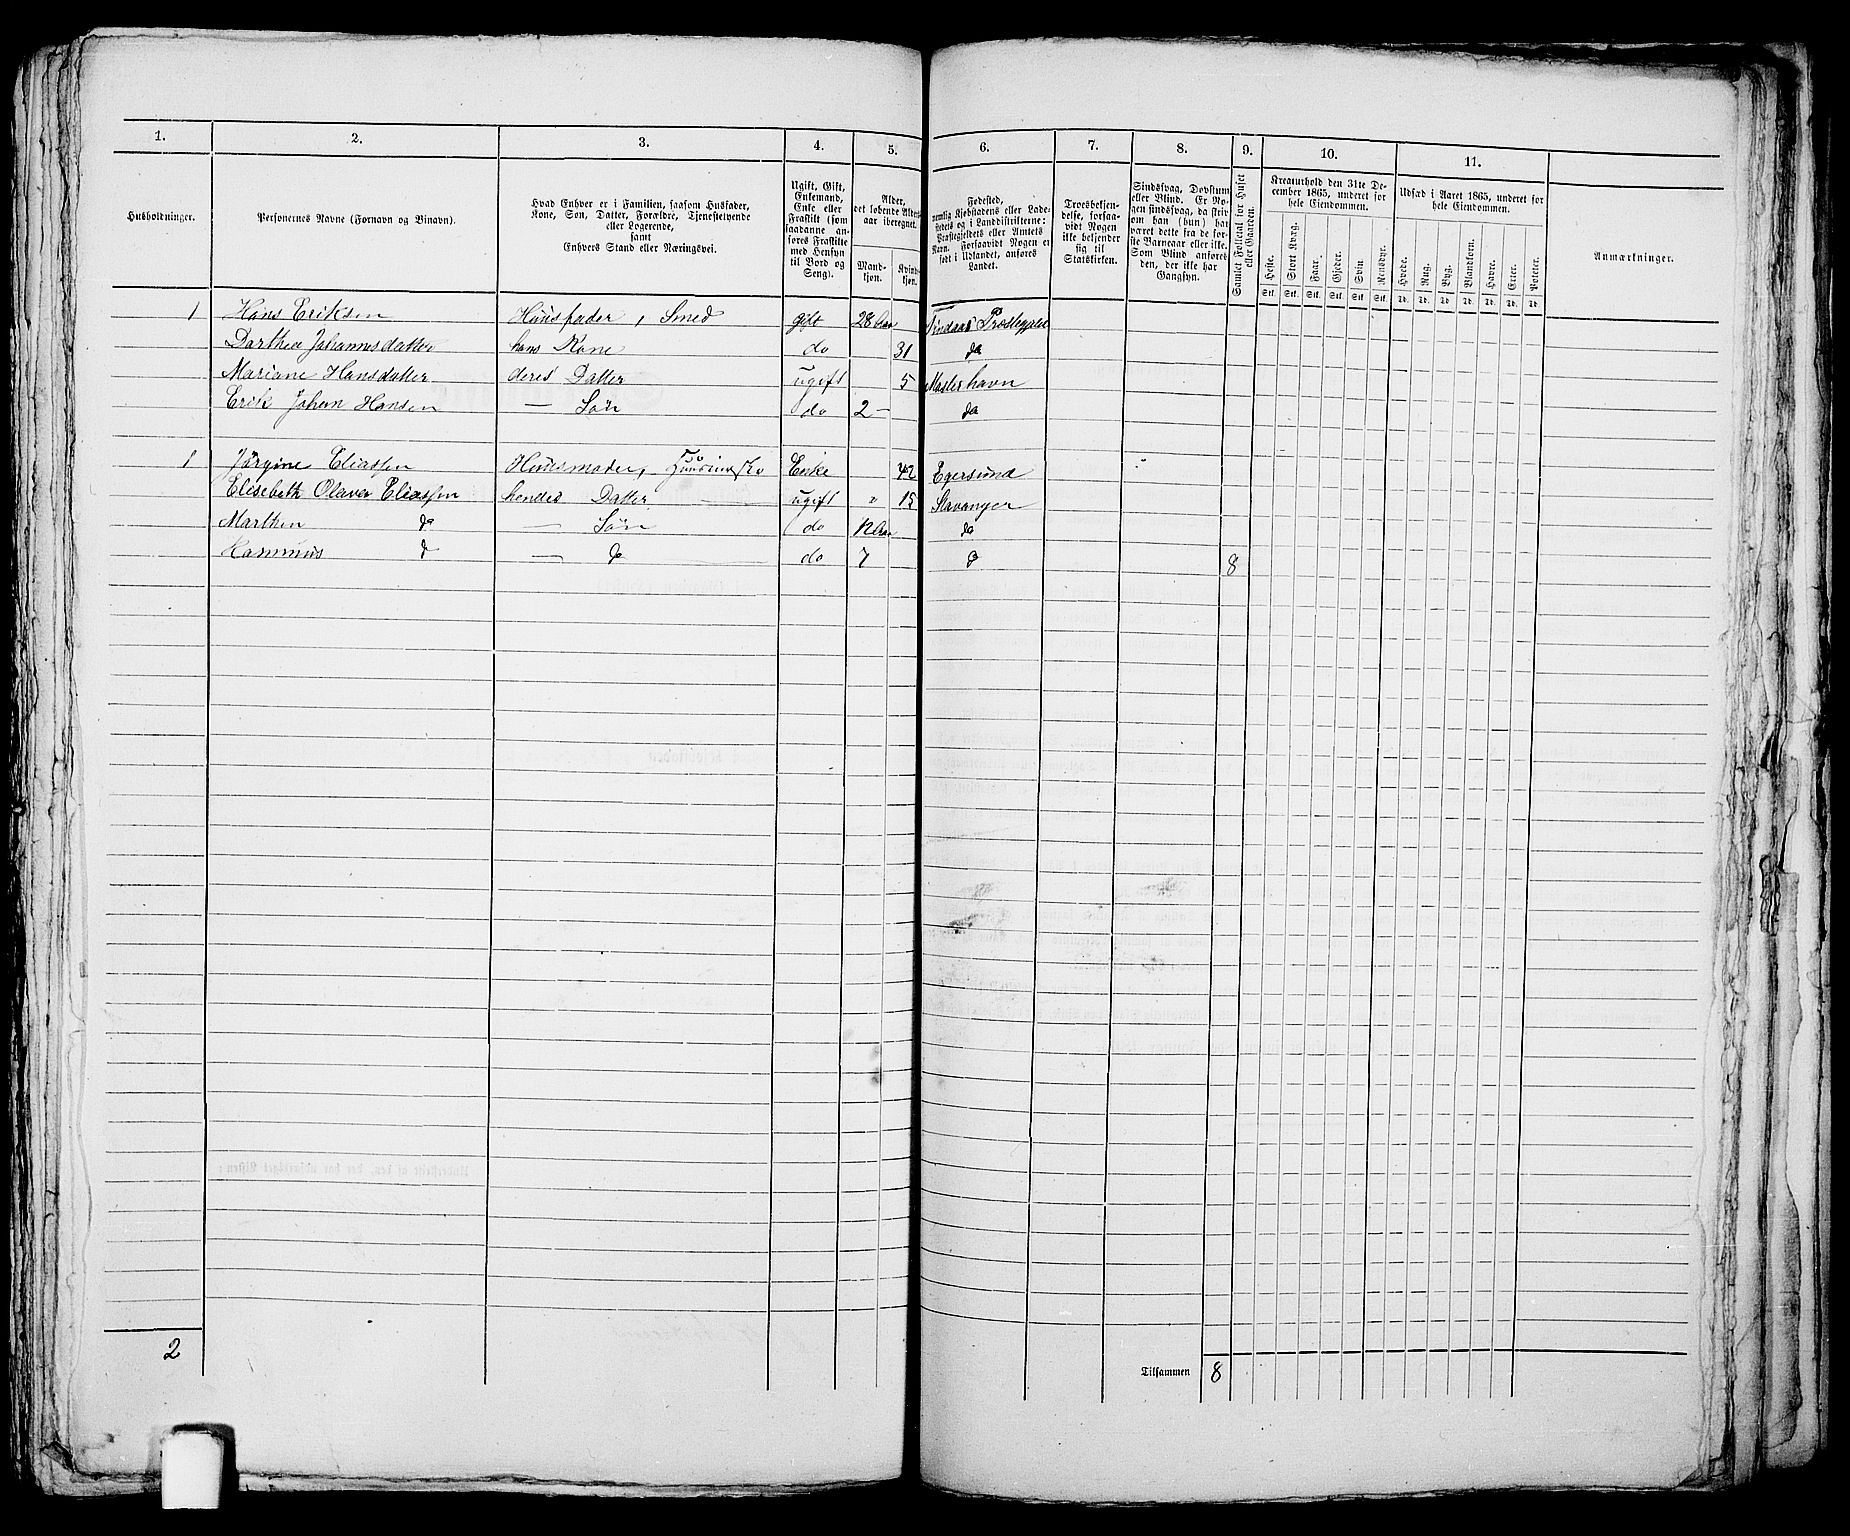 1. 2. 3. 4. 5. 6. 7. 8. 9. 10. 11.
Husholdninger.
Personernes Navne (Fornavn og Binavn).
Hvad Enhver er i Familien, saasom Husfader,
Kone, Søn, Datter, Forældre, Tjenestetyende
eller Logerende,
samt
Enhvers Stand eller Næringsvei.
Ugift, Gift,
Enkemand,
Enke eller
Fraskilt (som
saadanne an-
føres Fraskilte
med Hensyn
til Bord og
Seng).
Alder,
det løbende Alders-
aar iberegnet.
Mand-
kjøn.
Kvind-
kjøn.
Fødested,
nemlig Kjøbstadens eller Lade-
stedets og i Landdistrikterne:
Præstegjeldets eller Amtets
Navn. Forsaavidt Nogen er
født i Udlandet, anføres
Landet.
Troesbekjen-
delse, forsaa-
vidt Nogen
ikke bekjender
sig til
Statskirken.
Sindssvag, Døvstum
eller Blind. Er No-
gen sindssvag, da skriv
om han (hun) har
været dette fra de før-
ste Barneaar eller ikke.
Som Blind anføres
den, der ikke har
Gangsyn.
Samlet Folketal for Huset
eller Gaarden.
Kreaturhold den 31te De-
cember 1865, underet for
hele Eiendommen.
Heste. Stort Kvæg. Faar. Gjeder. Svin. Rensdyr.
Stk. Stk. Stk. Stk. Stk. Stk.
Udsæd i Aaret 1865, underet for
hele Eiendommen.
Hvede. Rug. Byg. Blandkorn. Havre. Erter. Poteter.
Td. Td. Td. Td. Td. Td. Td.
Anmærkninger.
1 Hans Eriksen Huusfader, Smed gift 28 Aar Præstegjeld
Dorthea Johannesdatter hans Kone do 31 do
Mariane Hansdatter deres Datter ugift 5 Mosterhavn
Erik Johan Hansen — Søn do 2 — do
1 Jörgine Eliassen Huusmoder, Enke 42 Egersund
Elisebeth Olava Eliassen hendes Datter ugift " 15 Stavanger
Marthin do — Søn do 12 Aar do
Rasmus do — do do 7 do 8
2 Tilsammen 8